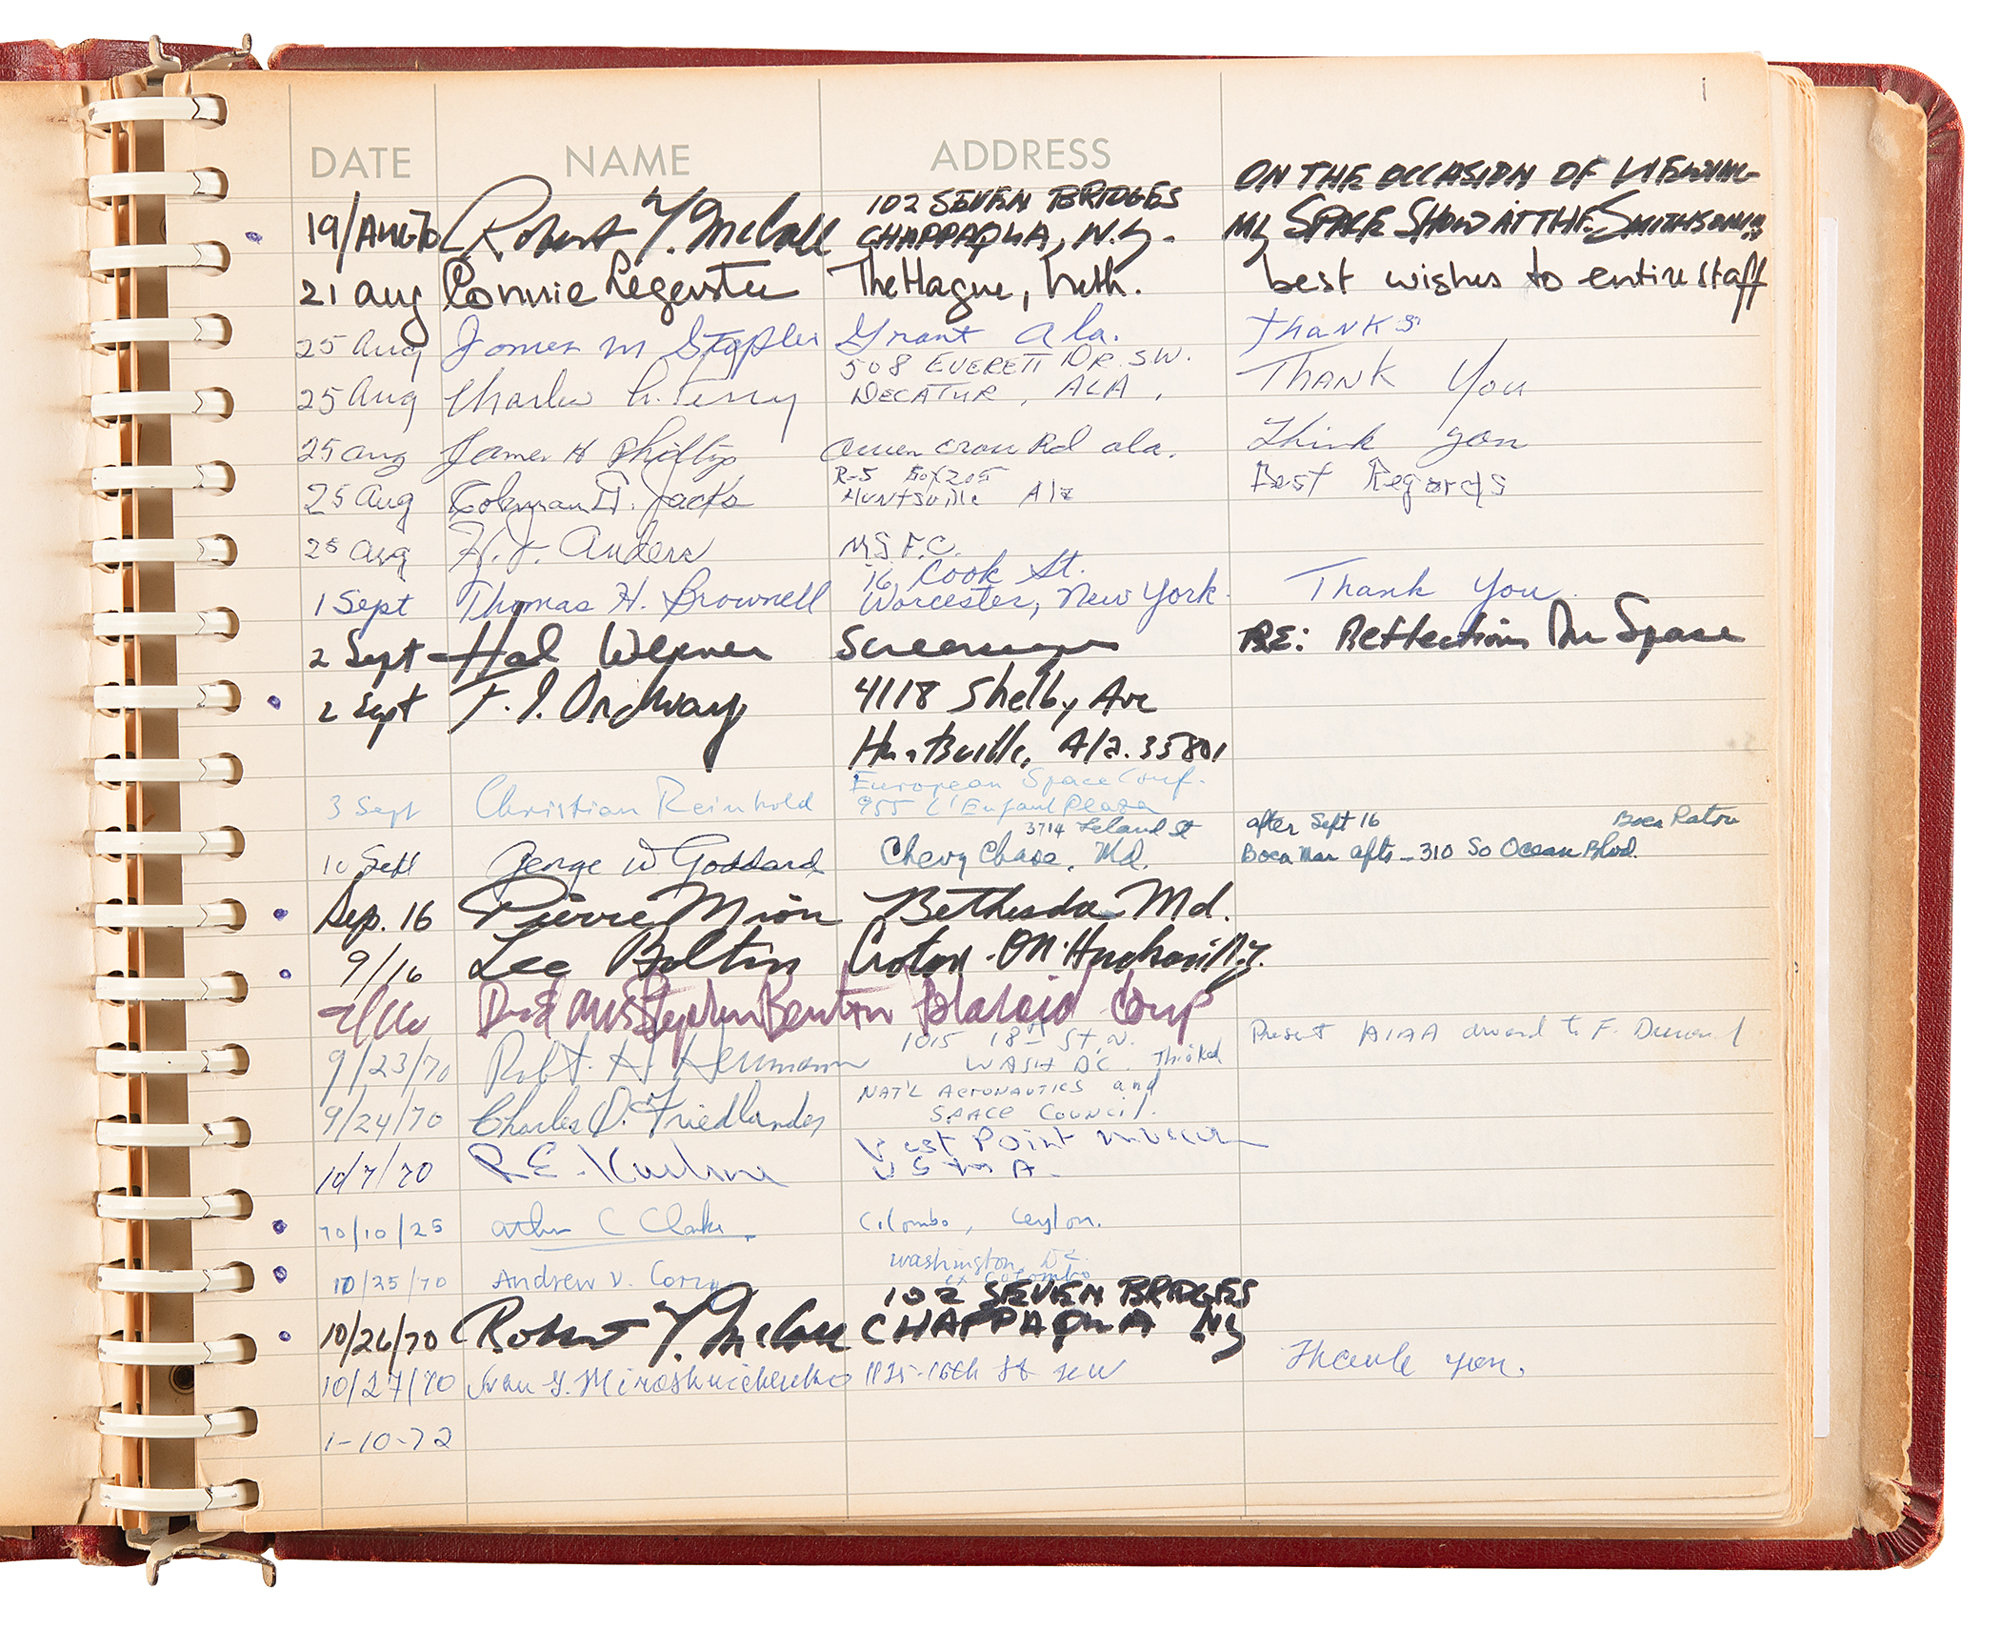 i
DATE NAME ADDRESS
ON THE OCCASION OF VIEWING
19/AUG 70 Robert T. McCall 102 SEVEN BRIDGES CHAPPAQUA, N.Y. MY SPACE SHOW AT THE SMITHSONIAN
21 aug Connie The Hague, Neth. best wishes to entire staff
25 Aug James M Grant Ala. Thanks
25 Aug Charles Terry 508 EVERETT DR. S.W. DECATUR, ALA, THANK You
25 aug James H Phillips Rd ala. Think you
25 Aug Jacks R-5 Box 205 Huntsville Ala Best Regards
25 Aug H. J. Anders MSFC.
1 Sept Thomas H. Brownell 16, Cook St. Worcester, New York. Thank You.
2 Sept Hal RE: Reflections In Space
2 Sept F. I. Ordway 4118 Shelby Ave
Huntsville, Ala. 35801
3 Sept Christian Reinhold European Space Conf. 955 L'Enfant Plaza
10 Sept George W Goddard 3714 Leland St Chevy Chase, Md. after Sept 16 Boca Raton Boca Mar apts - 310 So Ocean Blvd.
Sep. 16 Pierre Mion Bethesda Md.
9/16 Lee Boltin Croton-On-Hudson N.Y.
Stephen Benton Polaroid Corp
9/23/70 Robt. H. Herrmann 1015 18th St. N. WASH DC. Present AIAA award to F.
9/24/70 Charles D. Friedlander NAT'L AERONAUTICS and SPACE COUNCIL.
10/7/70 R.E. West Point Museum USMA
70/10/25 Arthur C Clarke Colombo, Ceylon.
10/25/70 Andrew V. Washington, DC. ex Colombo
10/26/70 Robert T. McCall 102 SEVEN BRIDGES CHAPPAQUA NY
10/27/70 Ivan G. Miroshnichenko 1125-16th St NW Thank you.
1-10-72